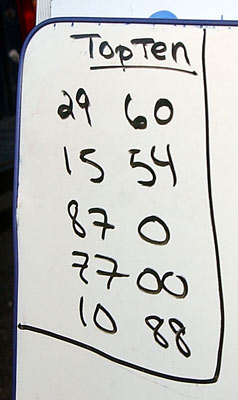 Top Ten
29 60
15 54
87 0
77 00
10 88